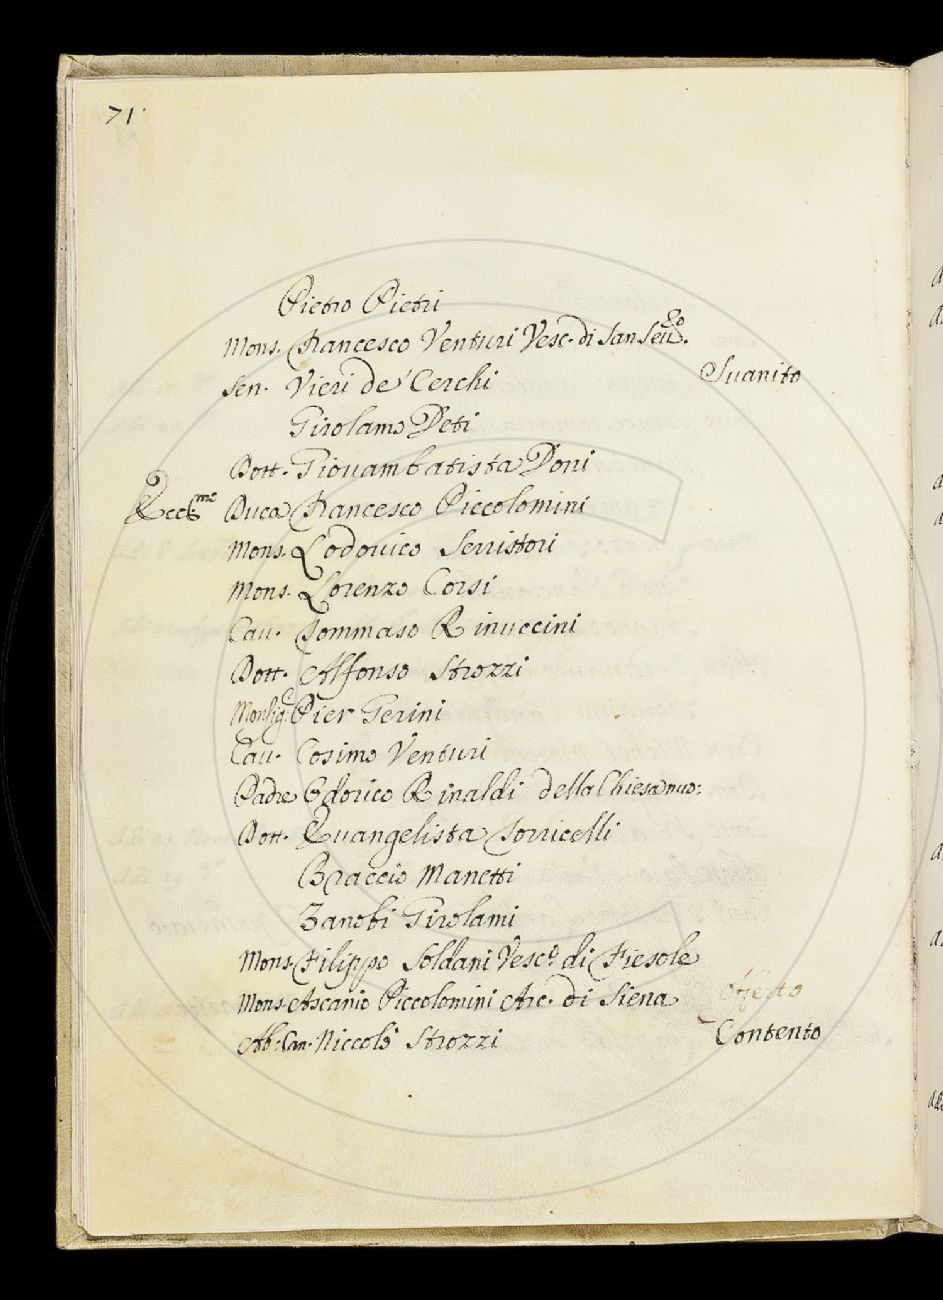 71
Pietro Pietri
Mons. Francesco Venturi Vesc. di San Seu.ro
Sen. Vieri de' Cerchi Suanito
Girolamo Deti
Dott. Giouambatista Doni
Ecc.mo Duca Francesco Piccolomini
Mons. Lodouico Serristori
Mons. Lorenzo Corsi
Cau. Tommaso Rinuccini
Dott. Alfonso Strozzi
Monsig. Pier Gerini
Cau. Cosimo Venturi
Padre Odorico Rinaldi della Chiesa nuo:
Dott. Euangelista Torricelli
Braccio Manetti
Zanobi Girolami
Mons. Filippo Soldani Vesc.o di Fiesole
Mons. Ascanio Piccolomini Arc. di Siena Offerto
Ab: Can. Niccolò Strozzi Contento